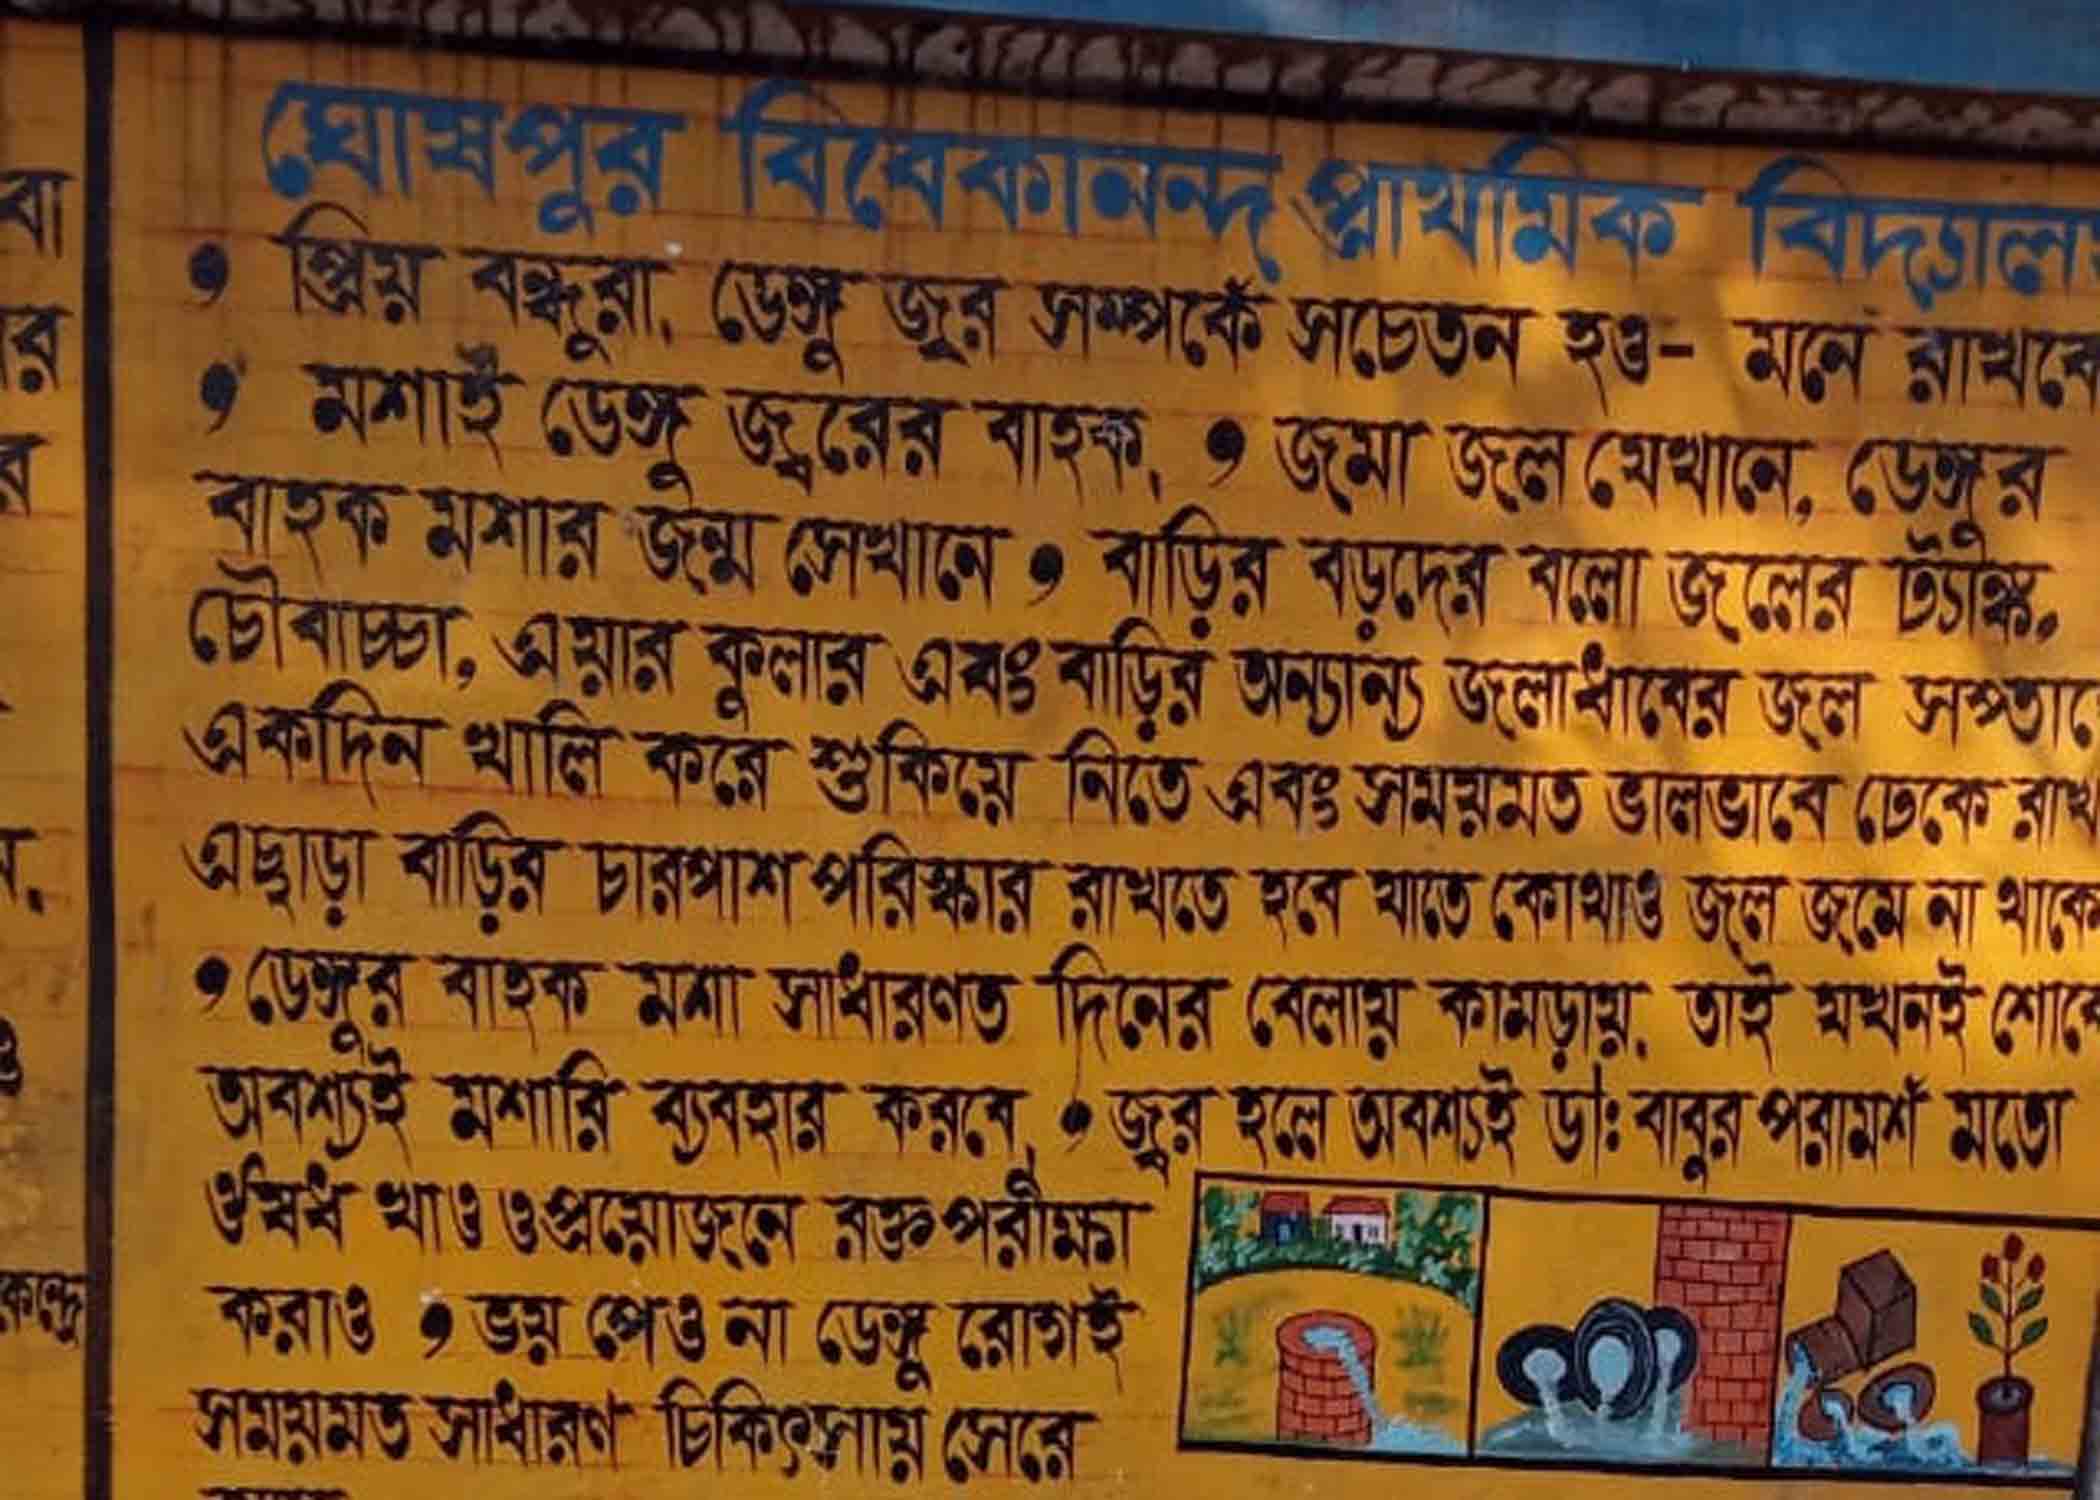 ঘোষপুর বিবেকানন্দ প্রাথমিক বিদ্যাল
প্রিয় বন্ধুরা, ডেঙ্গু জ্বর সম্পর্কে সচেতন হও- মনে রাখবে
মশাই ডেঙ্গু জ্বরের বাহক, জমা জল যেখানে, ডেঙ্গুর
বাহক মশার জন্ম সেখানে বাড়ির বড়দের বলো জলের ট্যাঙ্ক,
চৌবাচ্চা, এয়ার কুলার এবং বাড়ির অন্যান্য জলাধাবের জল সপ্তাহে
একদিন খালি করে শুকিয়ে নিতে এবং সময়মত ভালভাবে ঢেকে রাখ
এছাড়া বাড়ির চারপাশ পরিস্কার রাখতে হবে যাতে কোথাও জল জমে না থাকে
ডেঙ্গুর বাহক মশা সাধারণত দিনের বেলায় কামড়ায়, তাই যখনই শোবে
অবশ্যই মশারি ব্যবহার করবে, জ্বর হলে অবশ্যই ডাঃ বাবুর পরামর্শ মতো
ঔষধ খাও ও প্রয়োজনে রক্ত পরীক্ষা
করাও ভয় পেও না ডেঙ্গু রোগই
সময়মত সাধারণ চিকিৎসায় সেরে